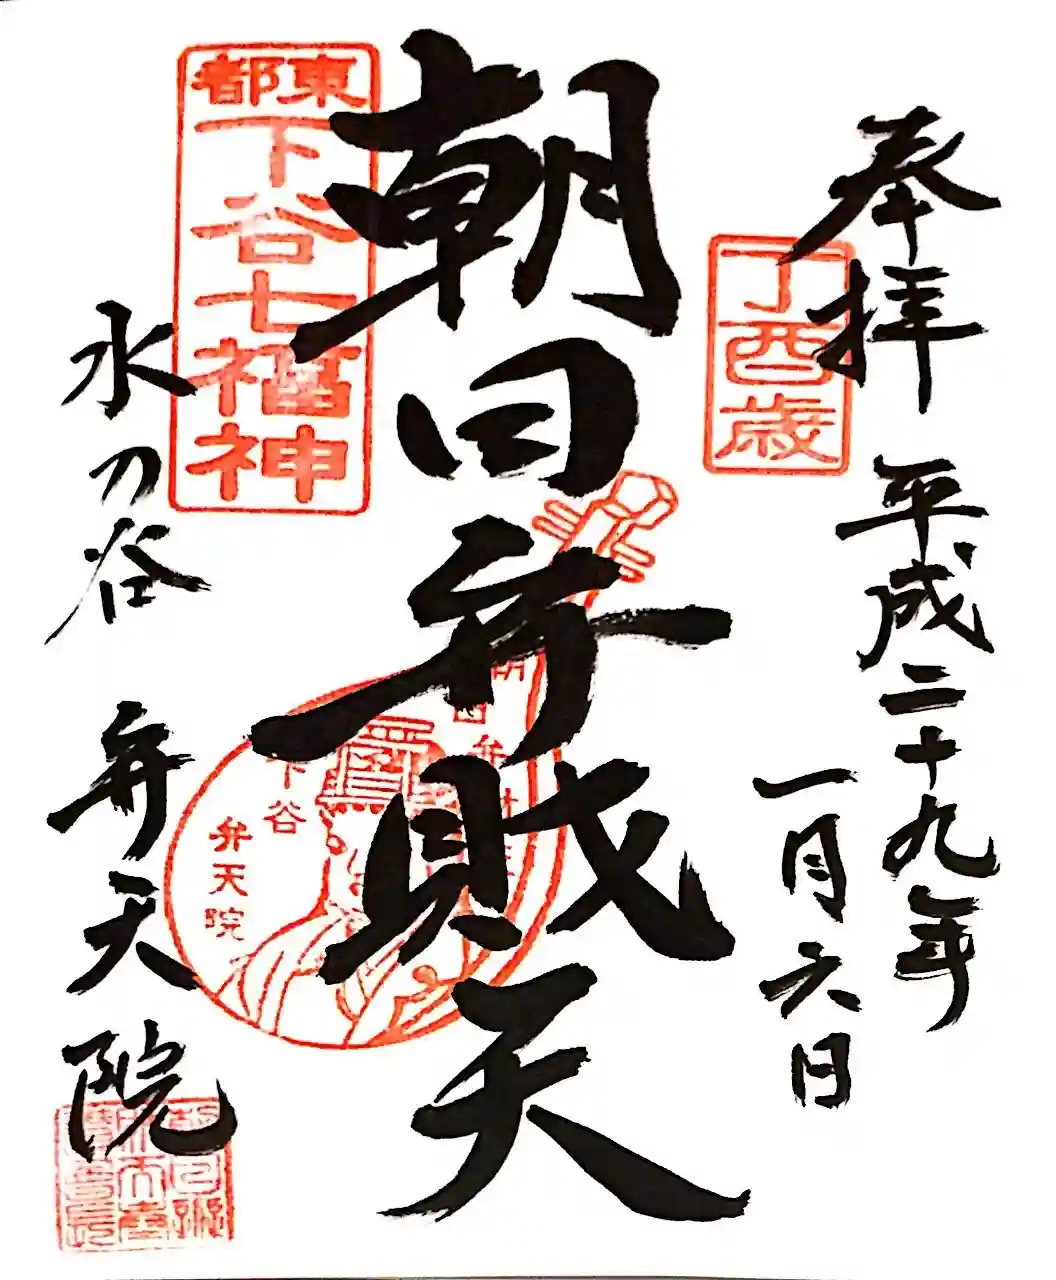 奉拝
平成二十九年
一月六日
丁酉歳
朝日弁財天
東都
下谷七福神
下谷
弁天院
水の谷
弁天院